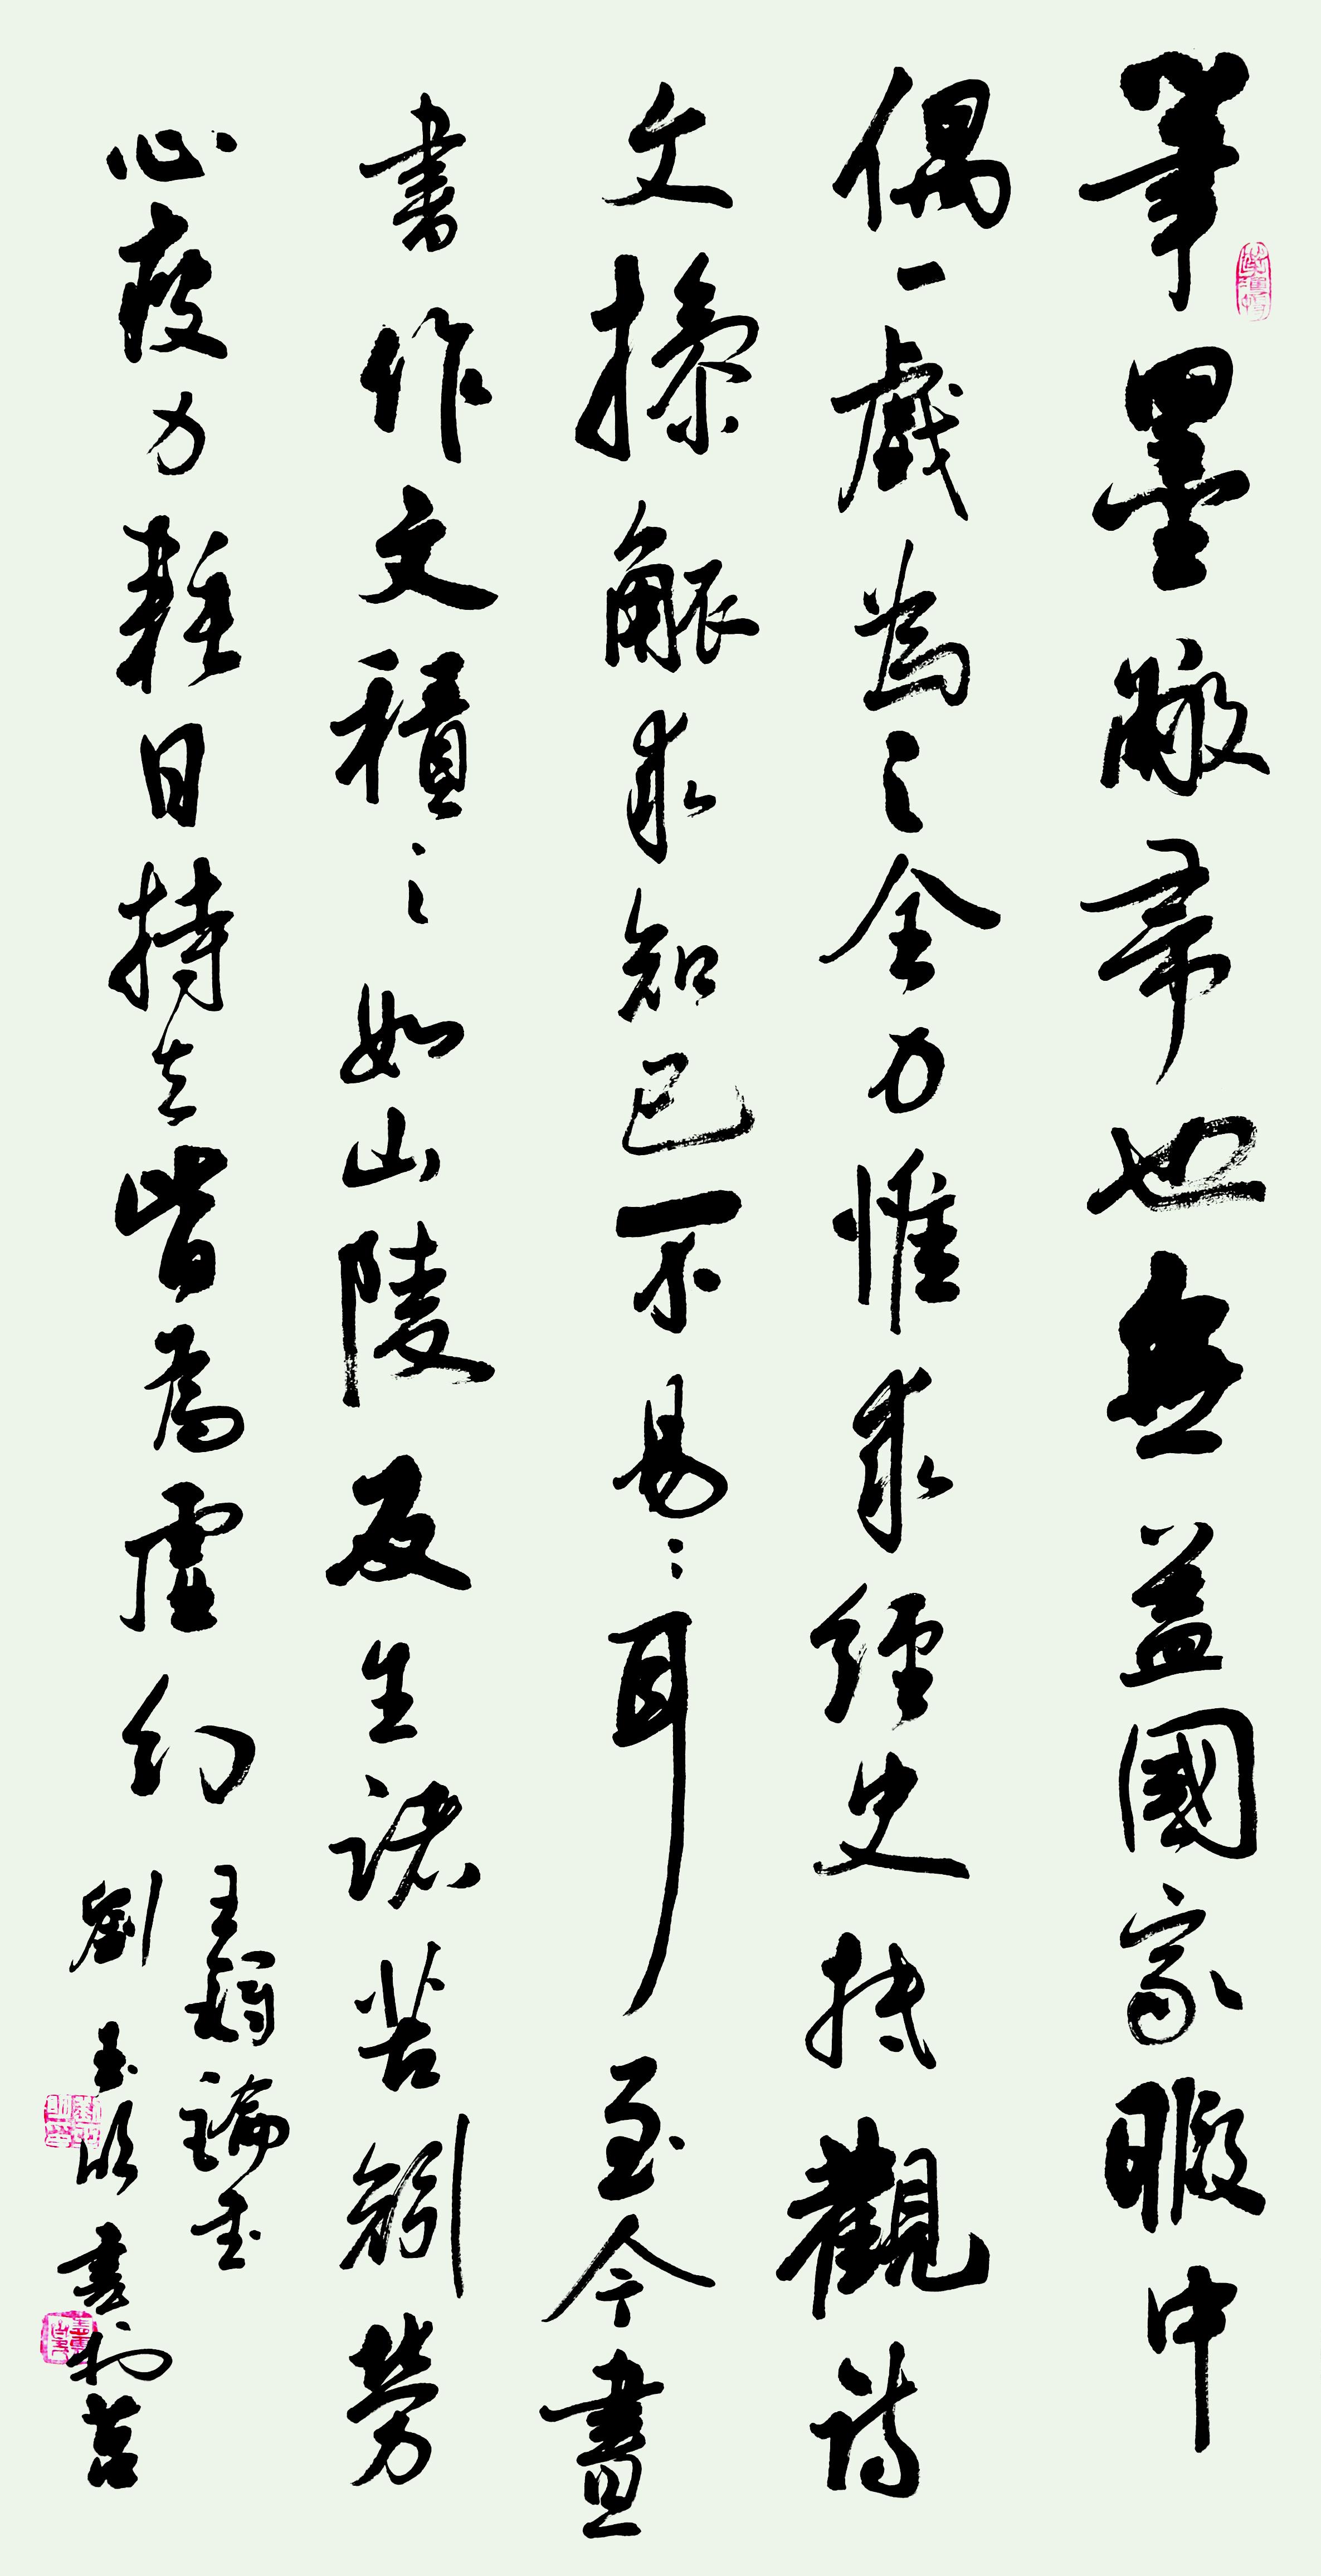 筆墨敝帚也無蓋國家暇中
偶一戲為之全力惟求經史扶觀詩
文操觚求知已不易:耳至今畫
書作文積之如山陵反生諸苦劍勞
心疲力耗日持之皆為虛幻
王 論書
劉玉 書於莒